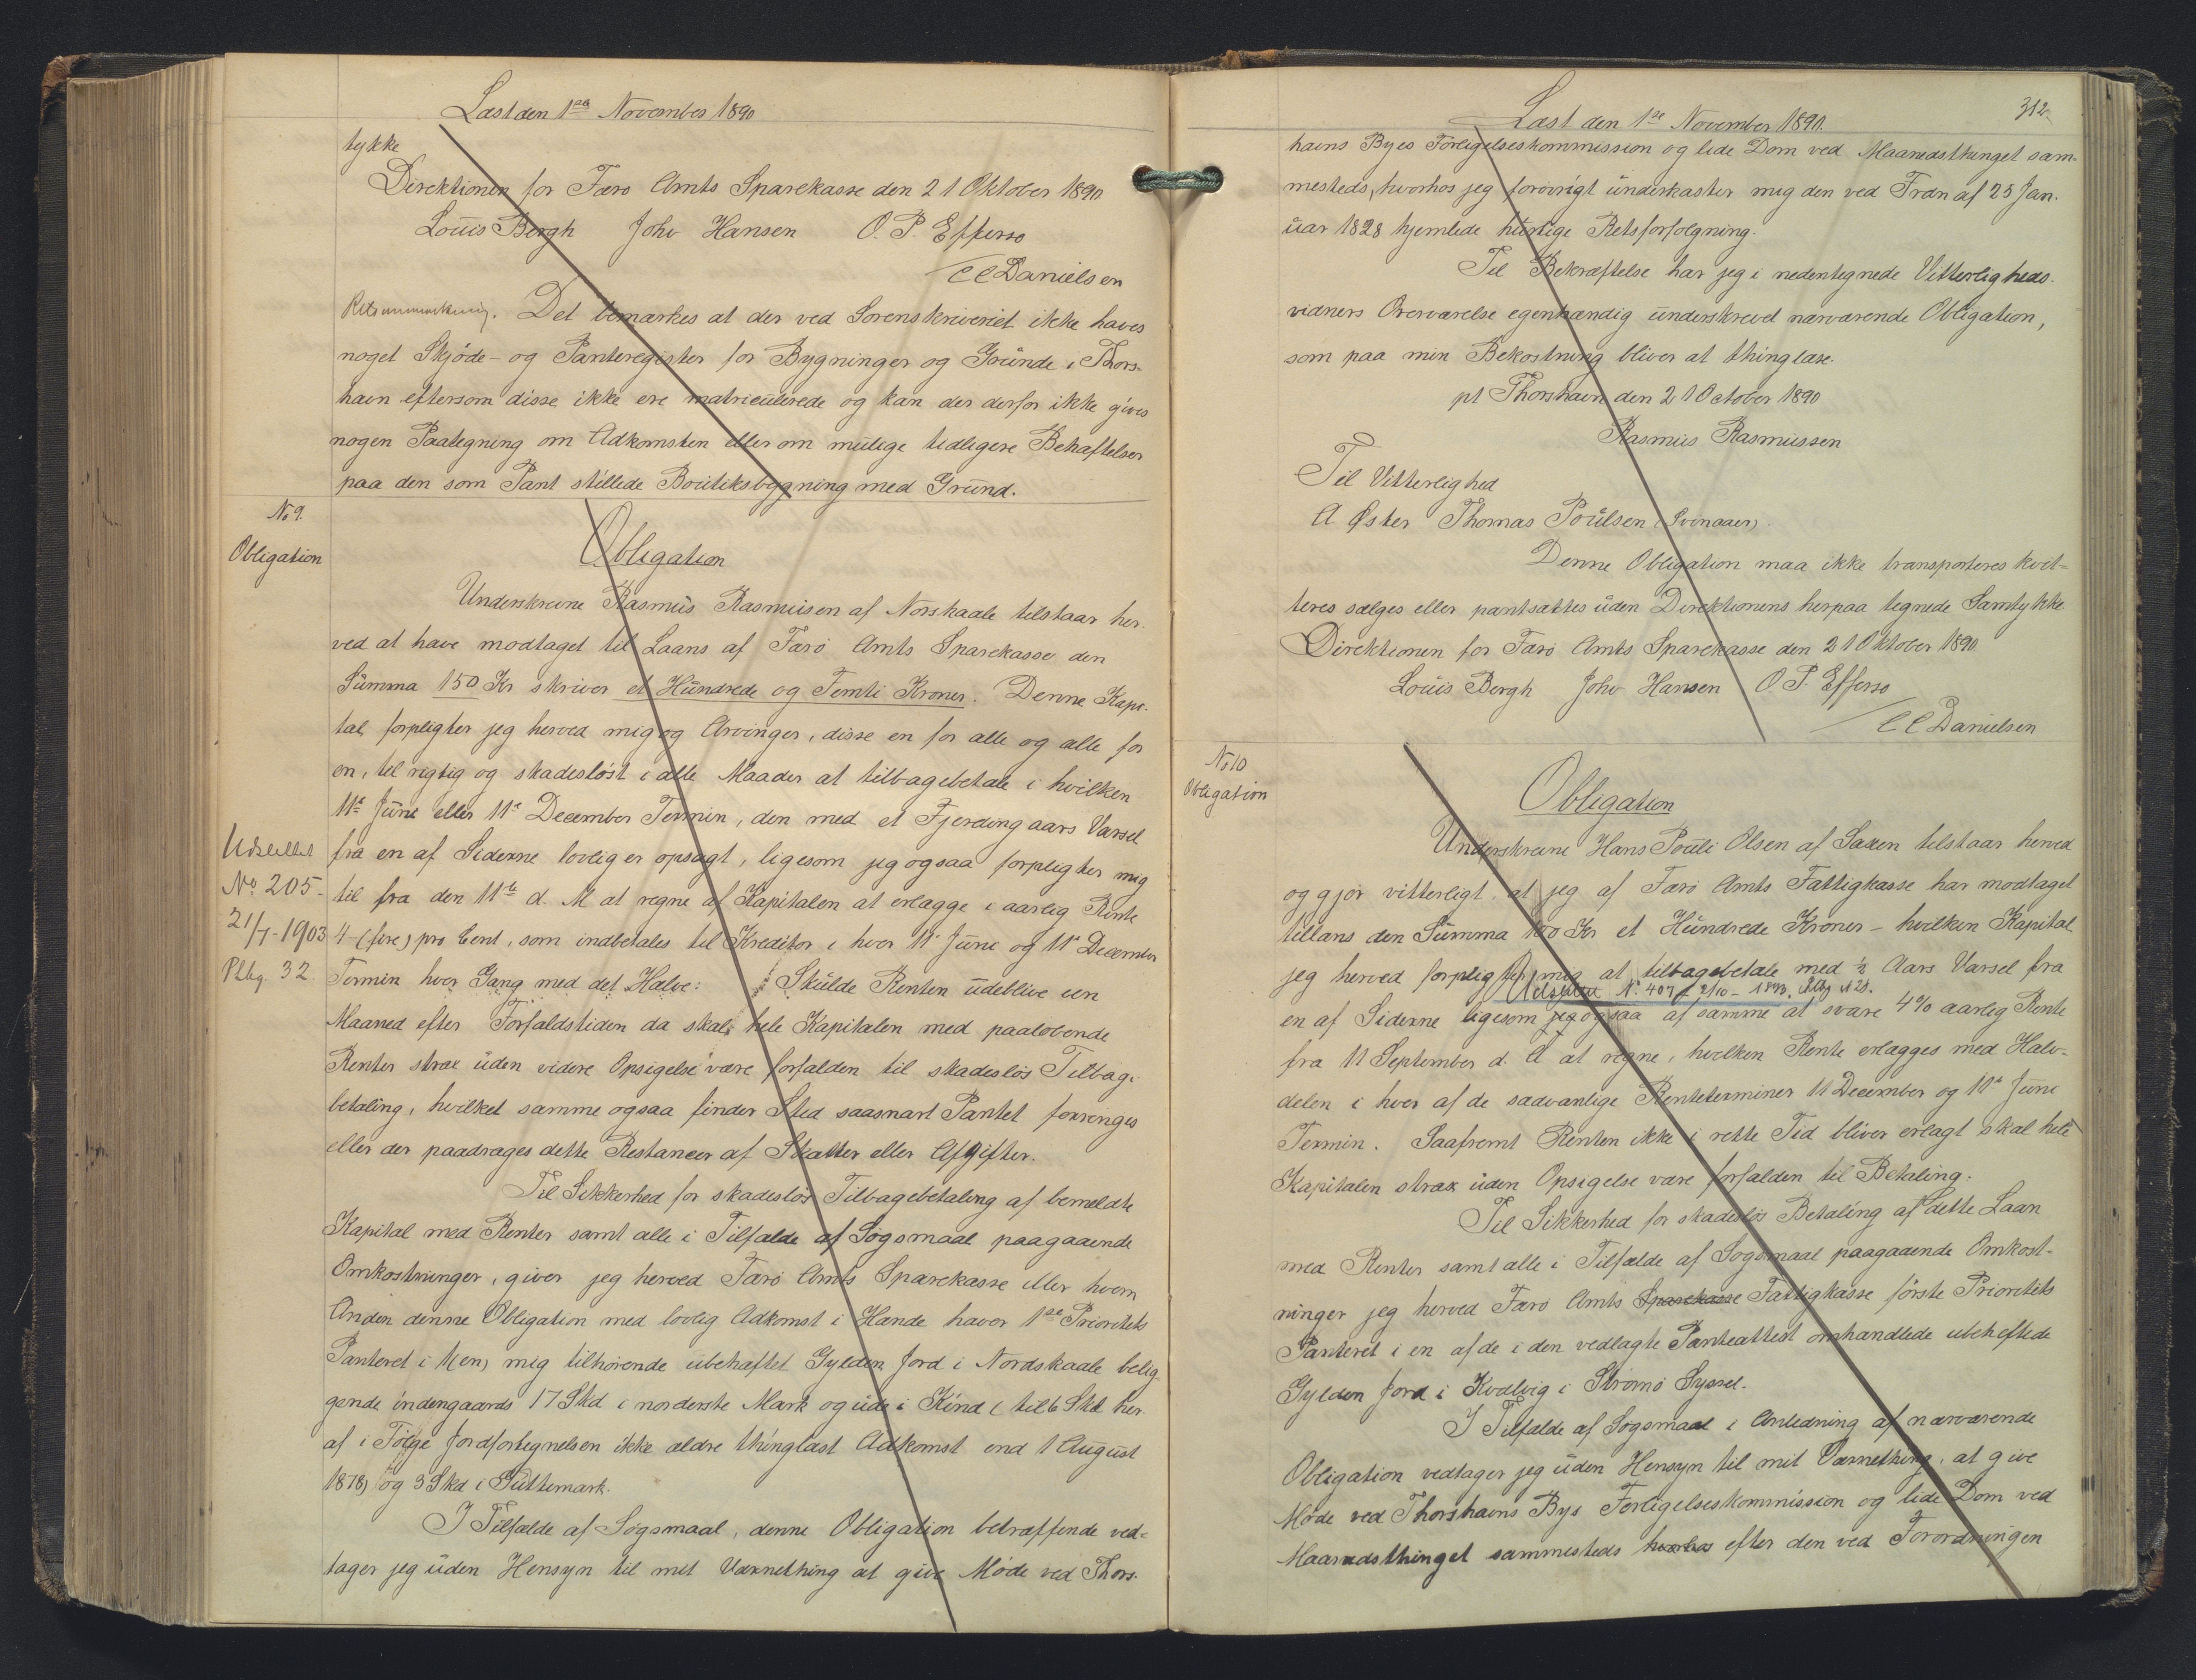 Læst den 1ste November 1890
tykke
Direktionen for Færø Amts Sparekasse den 21 Oktober 1890
Louis Bergh Johv Hansen O. P. Effersø
/ C C Danielsen
Retsanmærkning. Det bemærkes at der ved Sorenskriveriet ikke haves
noget Skjöde- og Panteregister for Bygninger og Grunde i Thors-
havn eftersom disse ikke ere matriculerede og kan der derfor ikke gives
nogen Paategning om Adkomsten eller om mulige tidligere Behæftelser
paa den som Pant stillede Boutiksbygning med Grund.
No 9.
Obligation
Obligation
Underskrevne Rasmus Rasmusen af Norskaale tilstaar her-
ved at have modtaget til Laans af Færö Amts Sparekasse den
Summa 150 Kr skriver et Hundrede og Femti Kroner. Denne Kapi-
tal forpligter jeg herved mig og Arvinger, disse en for alle og alle for
en, til rigtig og skadesløst i alle Maader at tilbagebetale i hvilken
11te June eller 11te December Termin, den med et Fjerdingaars Varsel
fra en af Siderne lovlig er opsagt, ligesom jeg ogsaa forpligter mig
til fra den 11te d. M at regne af Kapitalen at erlægge i aarlig Rente
4 (fire) pro Cent, som indbetales til Kreditor i hver 11te June og 11te December
Termin hver Gang med det Halve: Skulde Renten udeblive een
Maaned efter Forfaldstiden da skal hele Kapitalen med paaløbende
Renter strax uden videre Opsigelse være forfalden til skadesløs Tilbage-
betaling, hvilket samme ogsaa finder Sted saasnart Pantet forringes
eller der paadrages dette Restancer af Skatter eller Afgifter.
Udslettet
No 205-
21/7-1903
Pbg. 32.
Til Sikkerhed for skadesløs Tilbagebetaling af bemeldte
Kapital med Renter samt alle i Tilfælde af Søgsmaal paagaaende
Omkostninger, giver jeg herved Færö Amts Sparekasse eller hvem
Anden denne Obligation med lovlig Adkomst i Hænde haver 1ste Prioritets
Panteret i 1(en) mig tilhørende ubehæftet Gylden Jord i Nordskaale belig-
gende indengaards 17 Skd i norderste Mark og ude i Kind (til 6 Skd her-
af i Følge Jordfortegnelsen ikke ældre thinglæst Adkomst end 1 August
1878) og 3 Skd i Guttemark.
I Tilfælde af Søgsmaal, denne Obligation betræffende ved-
tager jeg uden Hensyn til mit Værnething at give Möde ved Thors-
312
Læst den 1ste November 1890.
havns Byes Forligelseskommission og lide Dom ved Maanedsthinget sam-
mesteds, hvorhos jeg forøvrigt underkaster mig den ved Frdn af 25 Jan-
uar 1828 hjemlede hurtige Retsforfølgning.
Til Bekræftelse har jeg i nedentegnede Vitterligheds-
vidners Overværelse egenhændig underskrevet nærværende Obligation,
som paa min Bekostning bliver at thinglæse.
pt Thorshavn den 21 October 1890
Rasmus Rasmussen
Til Vitterlighed
A Øster Thomas Poulsen (Svinaaer).
Denne Obligation maa ikke transporteres kvit-
teres sælges eller pantsættes uden Direktionens herpaa tegnede Samtykke
Direktionen for Færö Amts Sparekasse den 21 Oktober 1890.
Louis Bergh Johv Hansen O. P. Effersø
/ C C Danielsen
No 10
Obligation
Obligation
Underskrevne Hans Pouli Olsen af Saxen tilstaar herved
og gjör vitterligt at jeg af Færö Amts Fattigkasse har modtaget
tillans den Summa 100 Kr et Hundrede Kroner - hvilken Kapital
jeg herved forpligter mig at tilbagebetale med ½ Aars Varsel fra
Udslettet No. 407 - 2/10 - 1893. Pbg
en af Siderne ligesom jeg ogsaa af samme at svare 4% aarlig Rente
fra 11 September d. A at regne, hvilken Rente erlægges med Halv-
delen i hver af de sædvanlige Renteterminer 11 December og 11te June
Termin. Saafremt Renten ikke i rette Tid bliver erlagt skal hele
Kapitalen strax uden Opsigelse være forfalden til Betaling.
Til Sikkerhed for skadesløs Betaling af dette Laan
med Renter samt alle i Tilfælde af Søgsmaal paagaaende Omkost-
ninger jeg herved Færö Amts Sparekasse Fattigkasse förste Prioritets
Panteret i en af de i den vedlagte Panteattest omhandlede ubehæftede
Gylden Jord i Kvalvig i Strømø Syssel.
I Tilfælde af Søgsmaal i Anledning af nærværende
Obligation vedtager jeg uden Hensyn til mit Værnething, at give
Möde ved Thorshavns Bys Forligelseskommission og lide Dom ved
Maanedsthinget sammesteds hvorhos efter den ved Forordningen